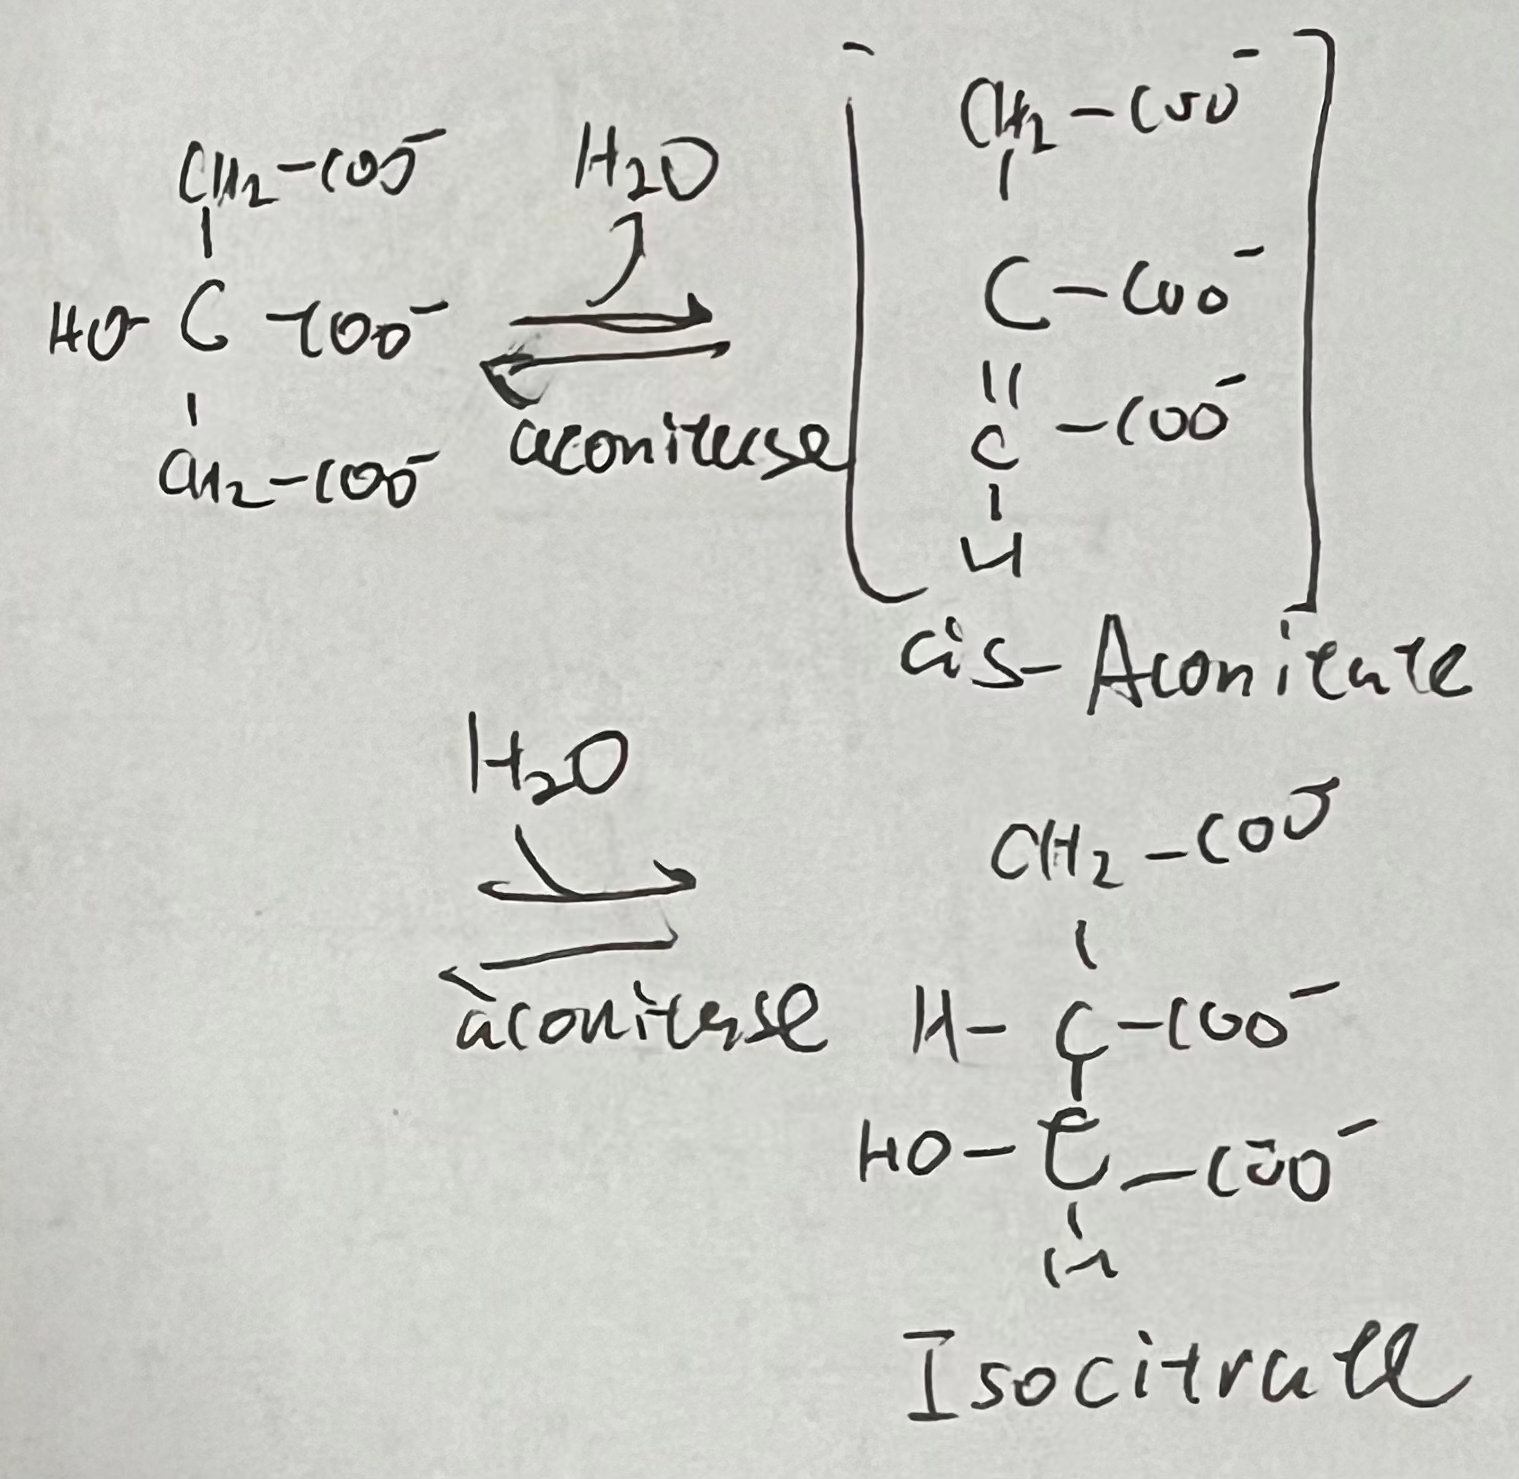 CH₂-COO⁻
HO-C-COO⁻
CH₂-COO⁻
H₂O
aconitase
CH₂-COO⁻
C-COO⁻
C-COO⁻
H
cis-Aconitate
H₂O
aconitase
CH₂-COO⁻
H-C-COO⁻
HO-C-COO⁻
H
Isocitrate